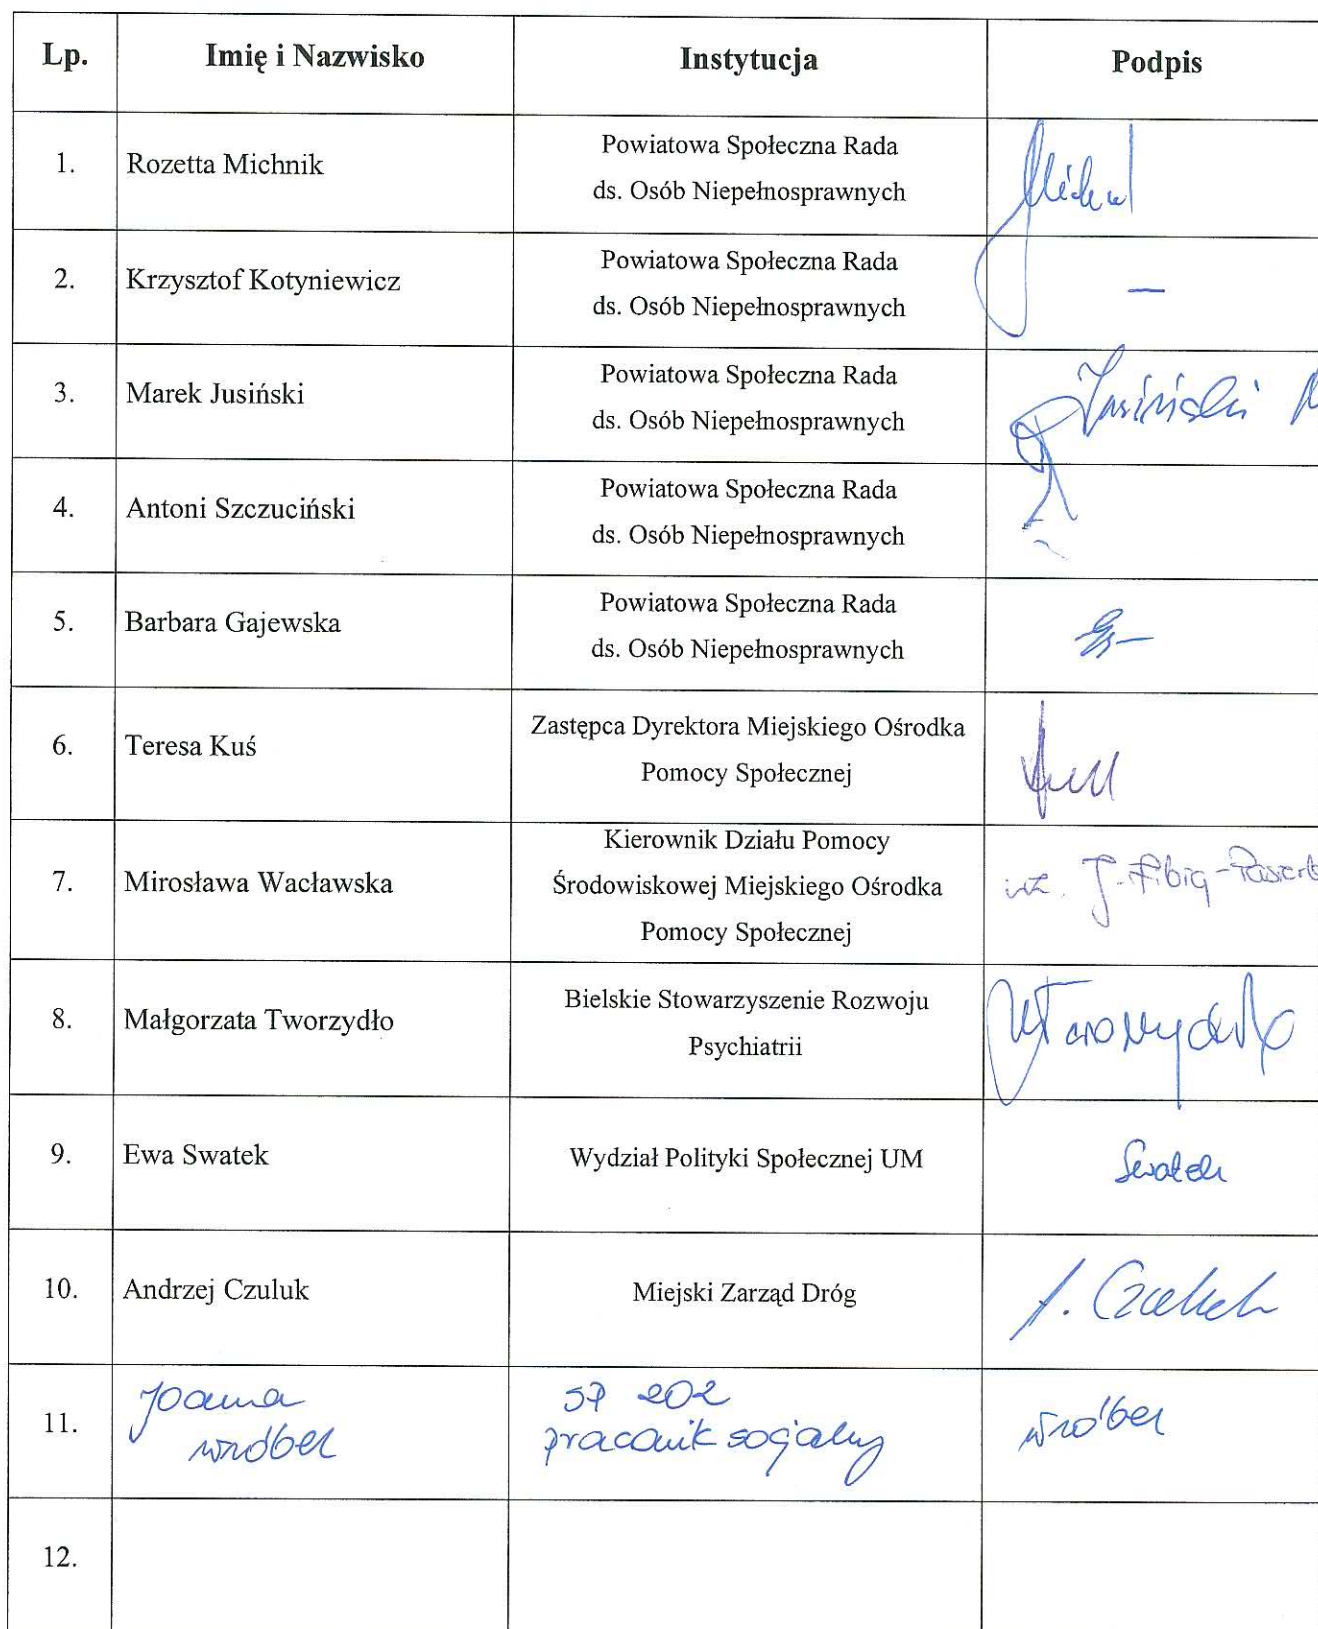 Lp. Imię i Nazwisko Instytucja Podpis
1. Rozetta Michnik Powiatowa Społeczna Rada
ds. Osób Niepełnosprawnych
2. Krzysztof Kotyniewicz Powiatowa Społeczna Rada
ds. Osób Niepełnosprawnych —
3. Marek Jusiński Powiatowa Społeczna Rada
ds. Osób Niepełnosprawnych
4. Antoni Szczuciński Powiatowa Społeczna Rada
ds. Osób Niepełnosprawnych
5. Barbara Gajewska Powiatowa Społeczna Rada
ds. Osób Niepełnosprawnych
6. Teresa Kuś Zastępca Dyrektora Miejskiego Ośrodka
Pomocy Społecznej
7. Mirosława Wacławska Kierownik Działu Pomocy
Środowiskowej Miejskiego Ośrodka
Pomocy Społecznej
8. Małgorzata Tworzydło Bielskie Stowarzyszenie Rozwoju
Psychiatrii
9. Ewa Swatek Wydział Polityki Społecznej UM Swatek
10. Andrzej Czuluk Miejski Zarząd Dróg A. Czuluk
11. Joanna
Wróbel
SP 202
pracownik socjalny
Wróbel
12.